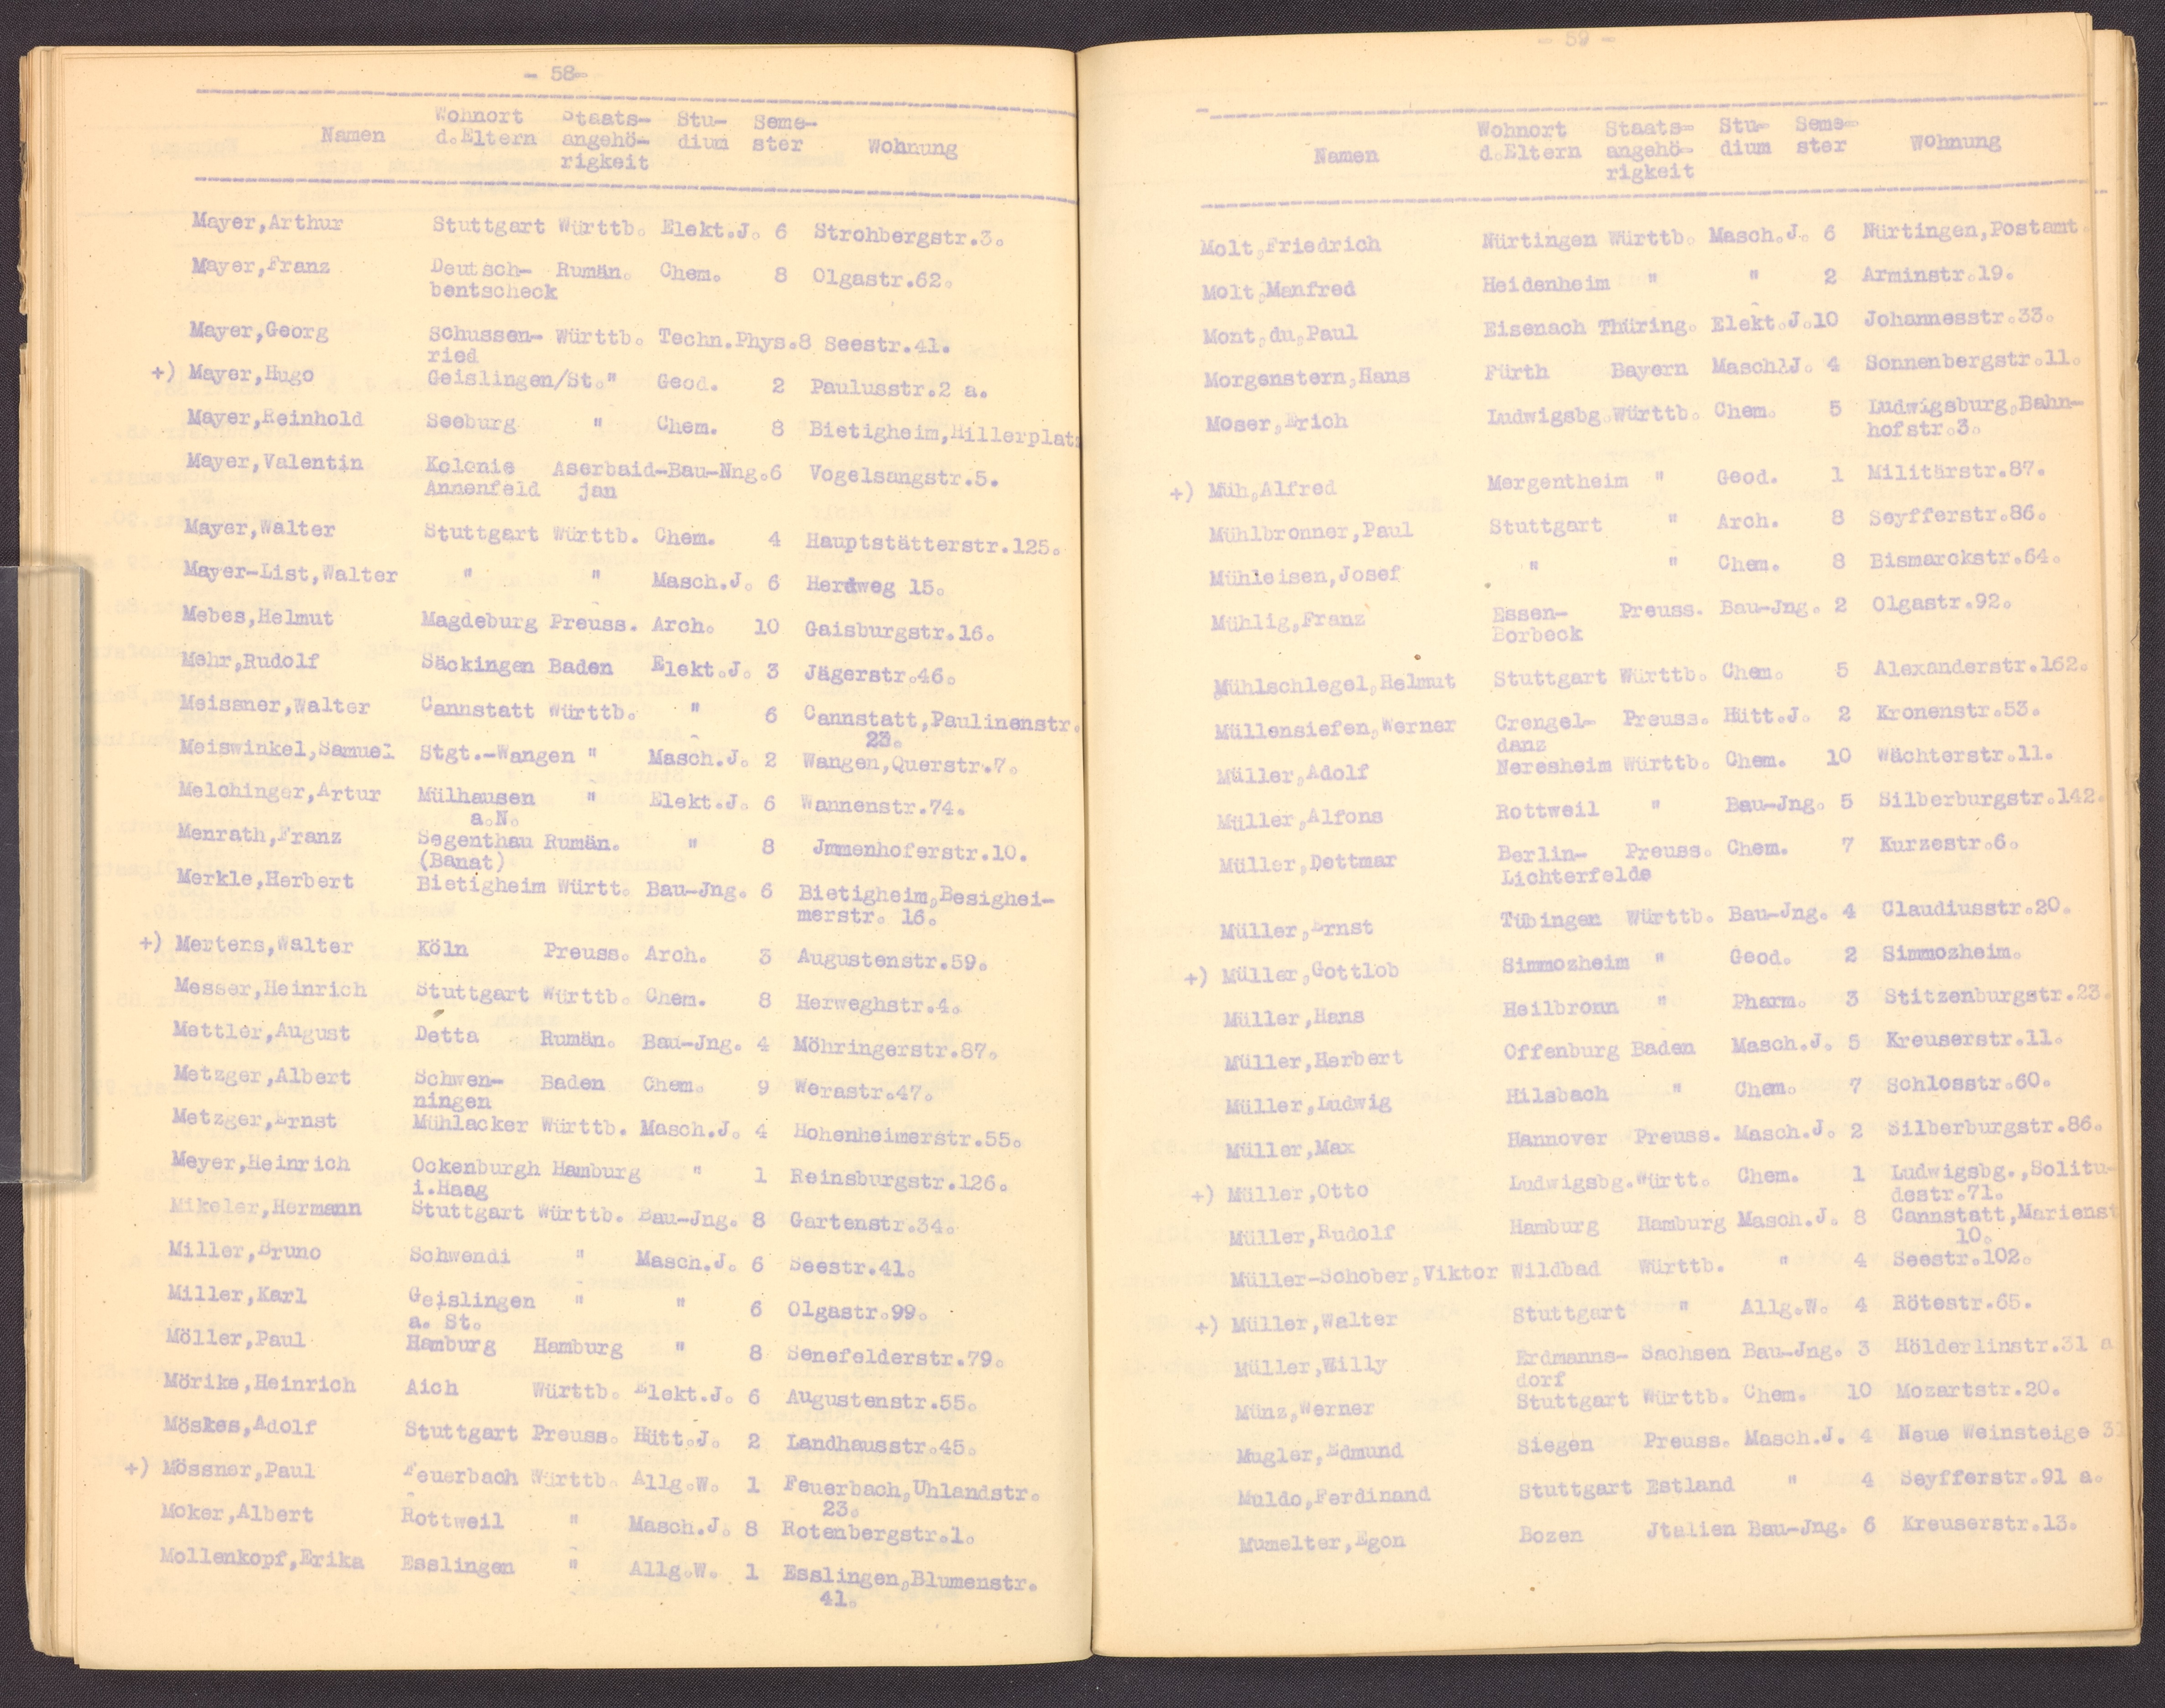 - 58-
Namen Wohnort d.Eltern Staats-angehö-rigkeit Stu-dium Seme-ster Wohnung
Mayer,Arthur Stuttgart Württb. Elekt.J. 6 Strohbergstr.3.
Mayer,Franz Deutsch- Rumän. Chem. 8 Olgastr.62.
bentscheck
Mayer,Georg Schussen- Württb. Techn.Phys.8 Seestr.41.
ried
+) Mayer,Hugo Geislingen/St." Geod. 2 Paulusstr.2 a.
Mayer,Reinhold Seeburg " Chem. 8 Bietigheim,Hillerplatz
Mayer,Valentin Kolonie Aserbaid-Bau-Nng.6 Vogelsangstr.5.
Annenfeld jan
Mayer,Walter Stuttgart Württb. Chem. 4 Hauptstätterstr.125.
Mayer-List,Walter " " Masch.J. 6 Herdweg 15.
Mebes,Helmut Magdeburg Preuss. Arch. 10 Gaisburgstr.16.
Mehr,Rudolf Säckingen Baden Elekt.J. 3 Jägerstr.46.
Meissner,Walter Cannstatt Württb. " 6 Cannstatt,Paulinenstr.
23.
Meiswinkel,Samuel Stgt.-Wangen " Masch.J. 2 Wangen,Querstr.7.
Melchinger,Artur Mülhausen " Elekt.J. 6 Wannenstr.74.
a.N.
Menrath,Franz Segenthau Rumän. " 8 Jmmenhoferstr.10.
(Banat)
Merkle,Herbert Bietigheim Württ. Bau-Jng. 6 Bietigheim,Besighei-
merstr. 16.
+) Mertens,Walter Köln Preuss. Arch. 3 Augustenstr.59.
Messer,Heinrich Stuttgart Württb. Chem. 8 Herweghstr.4.
Mettler,August Detta Rumän. Bau-Jng. 4 Möhringerstr.87.
Metzger,Albert Schwen- Baden Chem. 9 Werastr.47.
ningen
Metzger,Ernst Mühlacker Württb. Masch.J. 4 Hohenheimerstr.55.
Meyer,Heinrich Ockenburgh Hamburg " 1 Reinsburgstr.126.
i.Haag
Mikeler,Hermann Stuttgart Württb. Bau-Jng. 8 Gartenstr.34.
Miller,Bruno Schwendi " Masch.J. 6 Seestr.41.
Miller,Karl Geislingen " " 6 Olgastr.99.
a. St.
Möller,Paul Hamburg Hamburg " 8 Senefelderstr.79.
Mörike,Heinrich Aich Württb. Elekt.J. 6 Augustenstr.55.
Möskes,Adolf Stuttgart Preuss. Hütt.J. 2 Landhausstr.45.
+) Mössner,Paul Feuerbach Württb. Allg.W. 1 Feuerbach,Uhlandstr.
23.
Moker,Albert Rottweil " Masch.J. 8 Rotenbergstr.1.
Mollenkopf,Erika Esslingen " Allg.W. 1 Esslingen,Blumenstr.
41.
- 59 -
Namen Wohnort d.Eltern Staats-angehö-rigkeit Stu-dium Seme-ster Wohnung
Molt,Friedrich Nürtingen Württb. Masch.J. 6 Nürtingen,Postamt.
Molt,Manfred Heidenheim " " 2 Arminstr.19.
Mont,du,Paul Eisenach Thüring. Elekt.J.10 Johannesstr.33.
Morgenstern,Hans Fürth Bayern Masch.J. 4 Sonnenbergstr.11.
Moser,Erich Ludwigsbg.Württb. Chem. 5 Ludwigsburg,Bahn-
hofstr.3.
+) Müh,Alfred Mergentheim " Geod. 1 Militärstr.87.
Mühlbronner,Paul Stuttgart " Arch. 8 Seyfferstr.86.
Mühleisen,Josef " " Chem. 8 Bismarckstr.64.
Mühlig,Franz Essen- Preuss. Bau-Jng. 2 Olgastr.92.
Borbeck
Mühlschlegel,Helmut Stuttgart Württb. Chem. 5 Alexanderstr.162.
Müllensiefen,Werner Crengel- Preuss. Hütt.J. 2 Kronenstr.53.
danz
Müller,Adolf Neresheim Württb. Chem. 10 Wächterstr.11.
Müller,Alfons Rottweil " Bau-Jng. 5 Silberburgstr.142.
Müller,Dettmar Berlin- Preuss. Chem. 7 Kurzestr.6.
Lichterfelde
Müller,Ernst Tübingen Württb. Bau-Jng. 4 Claudiusstr.20.
+) Müller,Gottlob Simmozheim " Geod. 2 Simmozheim.
Müller,Hans Heilbronn " Pharm. 3 Stitzenburgstr.23.
Müller,Herbert Offenburg Baden Masch.J. 5 Kreuserstr.11.
Müller,Ludwig Hilsbach " Chem. 7 Schlosstr.60.
Müller,Max Hannover Preuss. Masch.J. 2 Silberburgstr.86.
+) Müller,Otto Ludwigsbg.Württ. Chem. 1 Ludwigsbg.,Solitu-
destr.71.
Müller,Rudolf Hamburg Hamburg Masch.J. 8 Cannstatt,Marienst
10.
Müller-Schober,Viktor Wildbad Württb. " 4 Seestr.102.
+) Müller,Walter Stuttgart " Allg.W. 4 Rötestr.65.
Müller,Willy Erdmanns- Sachsen Bau-Jng. 3 Hölderlinstr.31 a
dorf
Münz,Werner Stuttgart Württb. Chem. 10 Mozartstr.20.
Mugler,Edmund Siegen Preuss. Masch.J. 4 Neue Weinsteige 31
Muldo,Ferdinand Stuttgart Estland " 4 Seyfferstr.91 a.
Mumelter,Egon Bozen Jtalien Bau-Jng. 6 Kreuserstr.13.